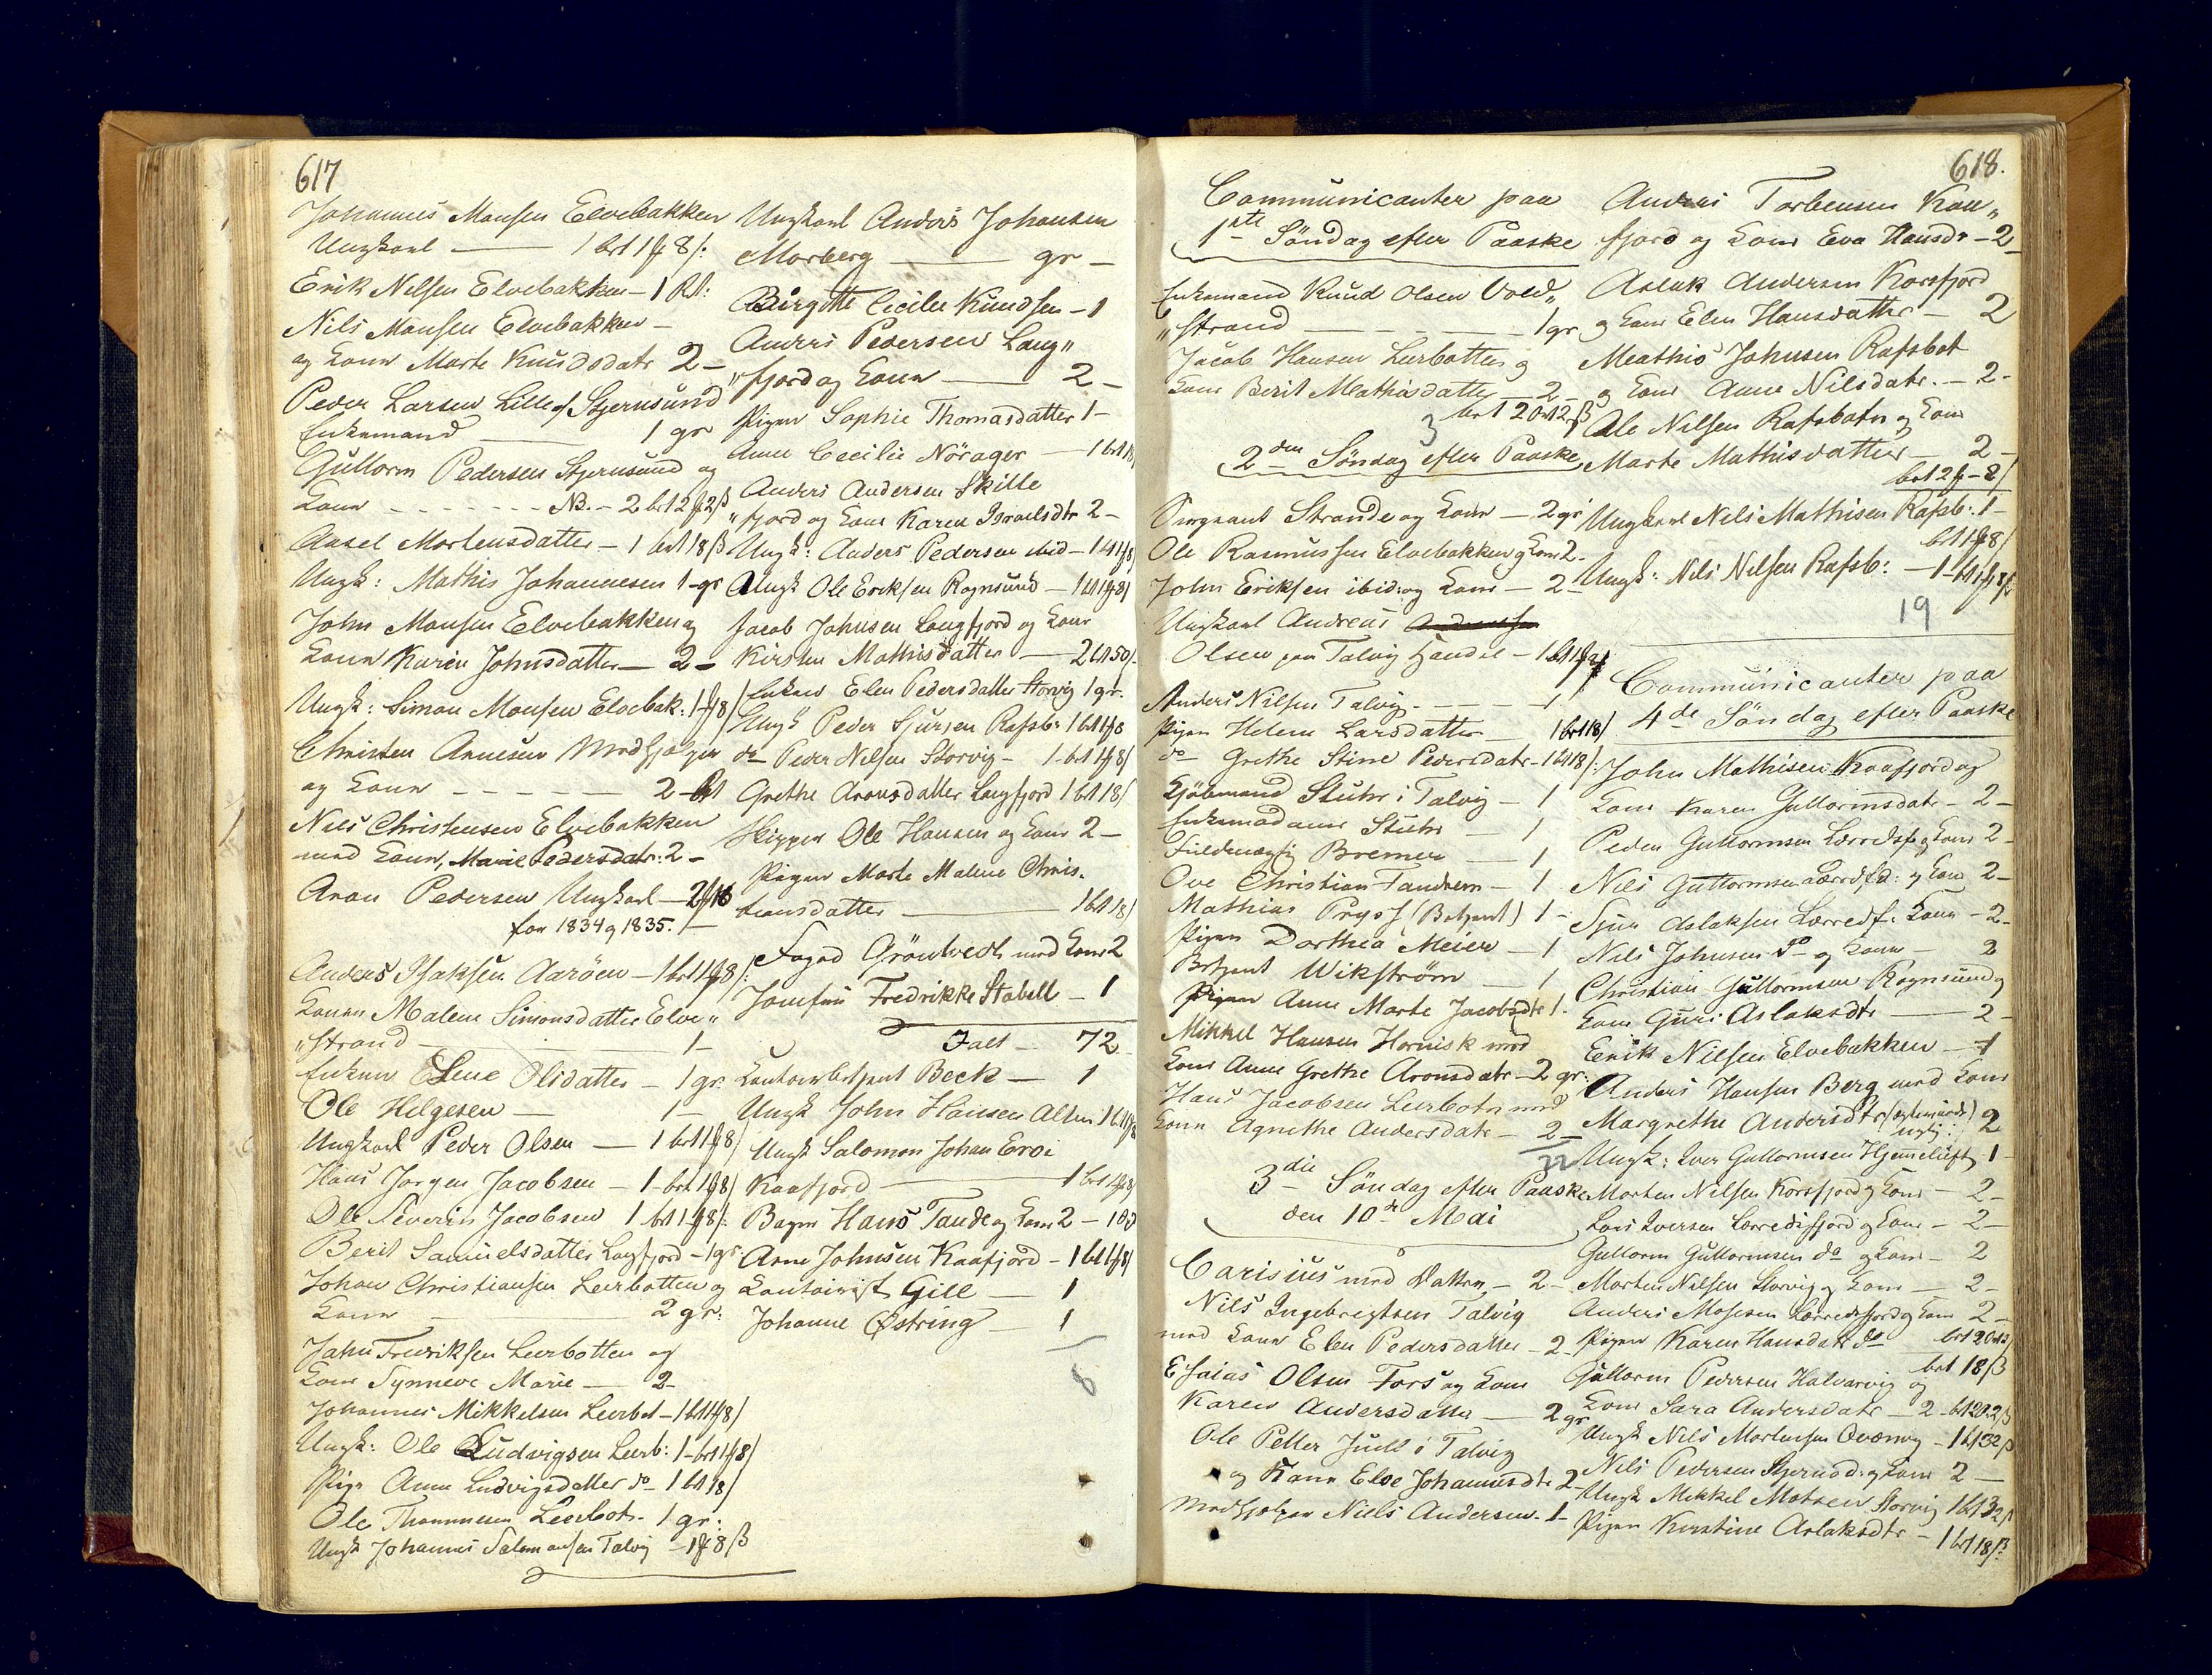 617
Johannes Monsen Elvebakken
Ungkarl — 1 bet 1 f 8/:
Erik Nilsen Elvebakken — 1 Bt:
Nils Monsen Elvebakken —
og Kone Marte Knudsdatr 2 —
Peder Larsen Lille af Stjernsund
Enkemand — 1 gr
Guttorm Pedersen Stjernsund og
Kone - - - - NB. — 2 bet 2 f 2 ß
Aasel Mortensdatter — 1 bet 18 ß
Ungk: Mathis Johannesen 1 - gr
John Monsen Elvebakken og
Kone Karen Johnsdatter — 2 —
Ungk: Simon Monsen Elvebak: 1 f 8/
Christen Arnesen Medhjelper
og Kone - - - - - 2 - bt
Nils Christensen Elvebakken
med Kone, Marie Pedersdatr: 2 —
Aron Pedersen Ungkarl — 2 f 16
for 1834 og 1835.
Anders Isaksen Aaröen — 1 bet 1 f 8/:
Konen Malene Simonsdatter Elve„
„strand — 1 —
Enken Elene Olsdatter — 1 gr.
Ole Helgesen — 1 —
Ungkarl Peder Olsen — 1 bet 1 f 8/
Hans Jørgen Jacobsen — 1 - bet 1 f 8/
Ole Severin Jacobsen 1 bet 1 f 8/:
Berit Samuelsdatter Langfjord — 1 gr.
Johan Christiansen Leerbotten og
Kone — 2 gr:
John Fredriksen Leerbotten og
Kone Synneve Marie — 2 —
Johannes Mikkelsen Leerbot — 1 bet 1 f 8/
Ungk: Ole Ludvigsen Leerb: 1 - bet 1 f 8/
Pige Anne Ludvigsdatter do 1 bet 18/
Ole Thommesen Leerbot. 1 gr:
Ungk Johannes Salomonsen Talvig — 1 f 8 ß
Ungkarl Anders Johansen
Morberg — gr —
Birgitte Cecilie Knudsen — 1
Anders Pedersen Lang„
„fjord og Kone — 2 —
Pigen Sophie Thomasdatter 1 —
Anne Cecilie Nörager — 1 bet 18
Anders Andersen Skille
„fjord og Kone Karen Israelsdtr 2 —
Ungk: Anders Pedersen ibid — 1 bt 1 f 8/
Ungk Ole Eriksen Rognsund — 1 bt 1 f 8/
Jacob Johnsen Langfjord og Kone
Kirsten Mathisdatter — 2 bt 50/.
Enken Elen Pedersdatter Storvig 1 gr.
Ungk Peder Sjursen Rafsb: 1 bt 1 f 8
do Peder Nilsen Storvig — 1 - bt 1 f 8/
Grethe Aronsdatter Langfjord 1 bt 18/
Skipper Ole Hansen og Kone 2 —
Pigen Marte Malene Chris„
tiansdatter — 1 bt 18/
Foged Gröntvedt med Kone 2
Jomfru Fredrikke Stabell — 1
Ialt — 72
Kontorbetjent Beck — 1
Ungk John Hansen Alten 1 bt 1 f 8
Ungk Salomon Johan Eroi
Kaafjord — 1 bet 1 f 8/
Bager Hans Tande og Kone 2 —
Arne Johnsen Kaafjord — 1 bet 1 f 8/
Kontoirist Gill — 1
Johanne Østring — 1
8
618.
Communicanter paa
1ste Söndag efter Paaske
Enkemand Knud Olsen Vold„
„strand — 1 gr
Jacob Hansen Leerbotten og
Kone Berit Mathisdatter — 2 —
bet 2 ort 12 ß
3
2den Söndag efter Paaske
Sergeant Strande og Kone — 2 gr
Ole Rasmussen Elvebakken og Kone 2 —
John Eriksen ibid: og Kone — 2 —
Ungkarl Andreas Andersen
Olsen paa Talvig Handel — 1 bt 1 f 2/
Anders Nilsen Talvig - - - - 1
Pigen Helene Larsdatter — 1 bet 18/
do Grethe Stine Pedersdatr — 1 bt 18/:
Kjöbmand Stuhr i Talvig — 1
Enkemadame Stuhr — 1
Fuldmægtig Bremer — 1
Ove Christian Tandrem — 1
Mathias Prysf (Betjent) 1 —
Pigen Dorthea Meier — 1
Betjent Wikström — 1
Pigen Anne Marte Jacobsdtr 1.
Mikkel Hansen Hornisk med
Kone Anne Grethe Aronsdatr — 2 gr:
Hans Jacobsen Leerbotn med
Konen Agnethe Andersdatr — 2 —
22
3die Söndag efter Paaske
den 10de Mai
Carisius med Datter — 2 —
Nils Ingebregtsen Talvig
med Kone Elen Pedersdatter — 2 —
Esaias Olsen Fors og Kone
Karen Andersdatter — 2 gr
Ole Petter Juell i Talvig
og Kone Else Johannesdtr 2 —
Medhjelper Niels Andersen. 1 —
Anders Torbensen Kaa„
fjord og Kone Eva Hansdr — 2 —
Aslak Andersen Korsfjord
og Kone Elen Hansdatter — 2
Mathis Johnsen Rafsbot
og Kone Anne Nilsdatr. — 2 —
Ole Nilsen Rafsbotn og Kone
Marte Mathisdatter — 2 —
bet 2 f - 8/
Ungkarl Nils Mathisen Rafsb: 1 —
bt 1 f 8/
Ungk: Nils Nilsen Rafsb: — 1 - bt 1 f 8 ß
19
Communicanter paa
4de Söndag efter Paaske
John Mathisen Kaafjord og
Kone Karen Guttormsdatr — 2 —
Peder Guttormsen Lerredsf. og Kone 2 —
Nils Guttormsen Lerredsfd: og Kone 2 —
Sjur Aslaksen Lerredsf: Kone — 2 —
Nils Johnsen do og Kone — 2
Christian Guttormsen Rognsund og
Kone Guri Aslaksdtr — 2 —
Eerik Nielsen Elvebakken — 1
Anders Hansen Berg med Kone
Margrethe Andersdtr 2
Ungk: Iver Guttormsen Hjemeluft 1 —
Morten Nilsen Korsfjord og Kone — 2 —
Lars Iversen Lerredsfjord og Kone — 2 —
Guttorm Guttormsen do og Kone — 2
Morten Nilsen Storvig og Kone — 2 —
Anders Mosesen Lerredsfjord og Kone 2 —
Pigen Karen Hansdatr do
bet 18 ß
Guttorm Pedersen Halvarvig og
Kone Sara Andersdatr — 2 -
Ungk Nils Mortensen — 1 bt 32 ß
Nils Pedersen Stjernsd: og Kone 2 —
Ungk Mikkel Matsen Storvig 1 bt 32 ß
Pigen Kirstine Aslaksdtr — 1 bet 18 ß: